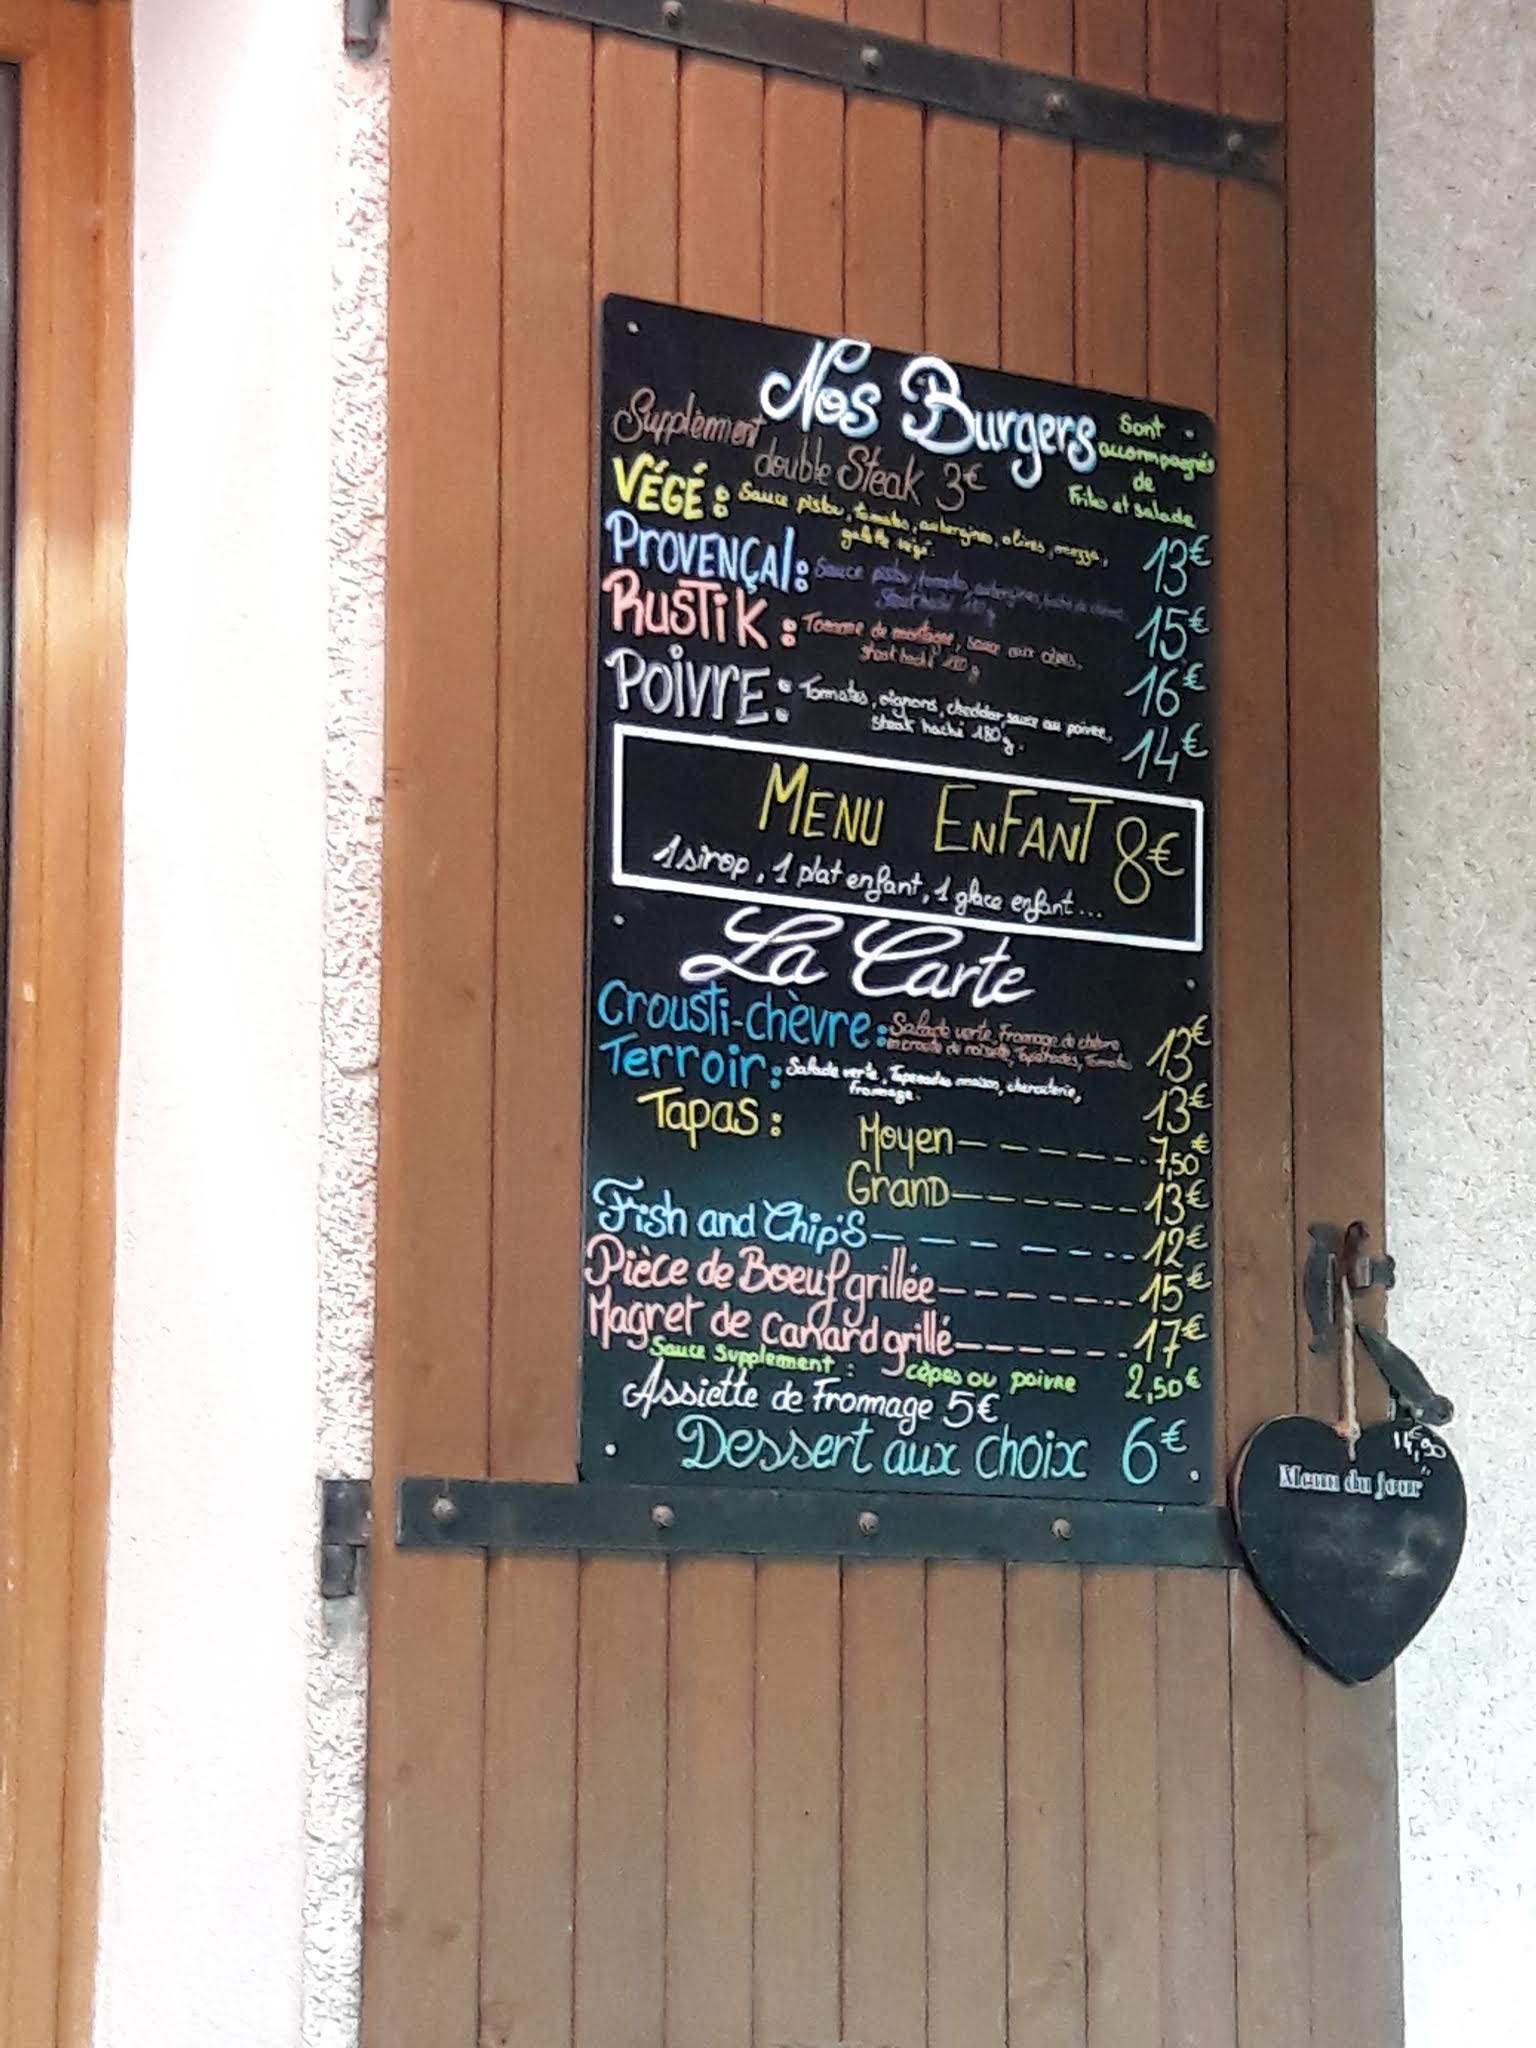 Nos Burgers
Sont
accompagnés
de
Frites et salade
Supplément
double Steak 3€
VÉGÉ : Sauce pistou, tomates, aubergines, olives, mozza,
galette végé. 13€
PROVENÇAl : Sauce pistou, tomates, aubergines,
Steak haché 180g 15€
RUSTIK : Tomme de montagne, sauce aux cèpes,
steak haché 180g 16€
POIVRE : Tomates, oignons, cheddar, sauce au poivre,
steak haché 180g. 14€
MENU ENFANT 8€
1 sirop, 1 plat enfant, 1 glace enfant...
La Carte
Crousti-chèvre : Salade verte, Fromage de chèvre
en croute de noisette, Tapenades, Tomates 13€
Terroir : Salade verte, Tapenades maison, charcuterie,
fromage. 13€
TAPAS : Moyen 7,50€
GRAND 13€
Fish and Chip'S 12€
Pièce de Boeuf grillée 15€
Magret de Canard grillé 17€
Sauce supplement : cèpes ou poivre 2,50€
Assiette de Fromage 5€
Dessert aux choix 6€
14€,90
Menu du jour